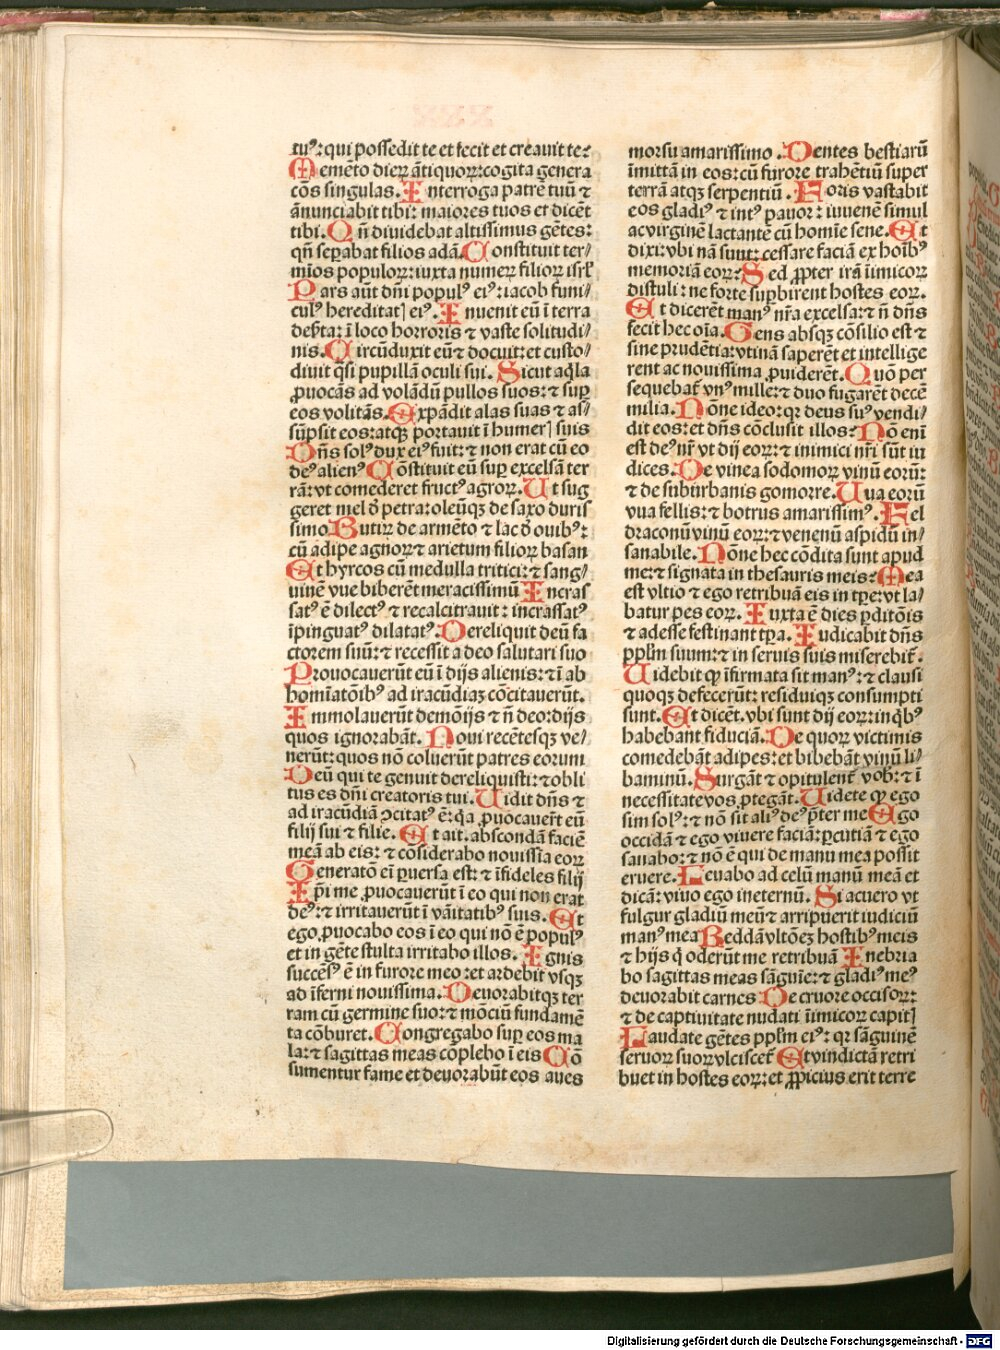 tuꝰ: qui possedit te et fecit et creauit te:
Memēto dierꝝ ātiquorꝝ: cogita genera
cōs singulas. Interroga patrē tuū ⁊
ānunciabit tibi: maiores tuos et dicēt
tibi. Qn̄ diuidebat altissimus gētes:
qn̄ seꝑabat filios adā. Constituit ter⸗
mīos populorꝝ: iuxta numerꝝ filiorꝝ isrl̓
Pars aūt dn̄i populꝰ eiꝰ: iacob funi⸗
culꝰ hereditatꝭ eiꝰ. Inuenit eū ī terra
deẜta: ī loco horroris ⁊ vaste solitudi⸗
nis. Circūduxit eū ⁊ docuit: et custo⸗
diuit q̄si pupillā oculi sui. Sicut aq̄la
ꝓuocās ad volādū pullos suos: ⁊ suꝑ
eos volitās. Expādit alas suas ⁊ as⸗
sūpsit eos: atqꝫ portauit ī humerꝭ suis
Dn̄s solꝰ dux eiꝰ fuit: ⁊ non erat cū eo
deꝰ alienꝰ Cōstituit eū suꝑ excelsā ter
rā: vt comederet fructꝰ agrorꝝ. Ut sug
geret mel ō petra: oleūqꝫ de saxo duris
simo Butirꝝ de armēto ⁊ lac ō ouibꝰ:
cū adipe agnorꝝ ⁊ arietum filiorꝝ basan
Et hyrcos cū medulla tritici: ⁊ sang⸗
uinē vue biberēt meracissimū Incras
satꝰ ē dilectꝰ ⁊ recalcitrauit: incrassatꝰ
īpinguatꝰ dilatatꝰ. Dereliquit deū fa
ctorem suū: ⁊ recessit a deo salutari suo
Prouocauerūt eū ī dijs alienis: ⁊ ī ab
homīatōibꝰ ad iracūdiaꝫ cōcitauerūt.
Immolauerūt demōijs ⁊ n̄ deo: dijs
quos ignorabāt. Noui recētesqꝫ ve⸗
nerūt: quos nō coluerūt patres eorum
Deū qui te genuit dereliquisti: ⁊ obli
tus es dn̄i creatoris tui. Uidit dn̄s ⁊
ad iracūdiā ꝯcitatꝰ ē: q̄a ꝓuocauer̄t eū
filij sui ⁊ filie. Et ait. abscondā faciē
meā ab eis: ⁊ cōsiderabo nouissīa eorꝝ
Generatō eī ꝑuersa est: ⁊ īfideles filij
Ip̄i me ꝓuocauerūt ī eo qui non erat
deꝰ: ⁊ irritauerūt ī vāitatibꝰ suis. Et
ego ꝓuocabo eos ī eo qui nō ē populꝰ
et in gēte stulta irritabo illos. Ignis
succēsꝰ ē in furore meo: et ardebit vsqꝫ
ad īferni nouissima. Deuorabitqꝫ ter
ram cū germine suo: ⁊ mōciū fundamē
ta cōburet. Congregabo suꝑ eos ma
la: ⁊ sagittas meas cōplebo ī eis Cō
sumentur fame et deuorabūt eos aues
morsu amarissimo. Dentes bestiarū
īmittā in eos: cū furore trahētiū super
terrā atqꝫ serpentiū. Foris vastabit
eos gladiꝰ ⁊ intꝰ pauor: iuuenē simul
ac virginē lactante cū homīe sene. Et
dixi: vbi nā sunt: cessare faciā ex hoībꝰ
memoriā eorꝝ: Sed ꝓpter irā īimicorꝝ
distuli: ne forte suꝑbirent hostes eorꝝ.
Et dicerēt manꝰ nr̄a excelsa: ⁊ n̄ dn̄s
fecit hec oīa. Gens absqꝫ cōsilio est ⁊
sine prudētia: vtinā saperēt et intellige
rent ac nouissima ꝓuiderēt. Quō per
sequebat̄ vnꝰ mille: ⁊ duo fugarēt decē
milia. Nōne ideo: qꝛ deus suꝰ vendi⸗
dit eos: et dn̄s cōclusit illos: Nō enī
est deꝰ nr̄ vt dij eorꝝ: ⁊ inimici nr̄i sūt iu
dices. De vinea sodomorꝝ vinū eorū:
⁊ de suburbanis gomorre. Uua eorū
vua fellis: ⁊ botrus amarissimꝰ. Fel
draconū vinū eorꝝ: ⁊ venenū aspidū in⸗
sanabile. Nōne hec cōdita sunt apud
me: ⁊ signata in thesauris meis: Mea
est vltio ⁊ ego retribuā eis in tꝑe: vt la⸗
batur pes eorꝝ. Iuxta ē dies ꝑditōis
⁊ adesse festinant tꝑa. Iudicabit dn̄s
pplm̄ suum: ⁊ in seruis suis miserebit̄.
Uidebit ꝙ īfirmata sit manꝰ: ⁊ clausi
quoqꝫ defecerūt: residuiqꝫ consumpti
sunt. Et dicēt. vbi sunt dij eorꝝ: in q̄bꝰ
habebant fiduciā. De quorꝝ victimis
comedebāt adipes: et bibebāt vinū li⸗
baminū. Surgāt ⁊ opitulent̄ vob̄: ⁊ ī
necessitate vos ꝓtegāt. Uidete ꝙ ego
sim solꝰ: ⁊ nō sit aliꝰ deꝰ pter me Ego
occidā ⁊ ego viuere faciā: ꝑcutiā ⁊ ego
sanabo: ⁊ nō ē qui de manu mea possit
eruere. Leuabo ad celū manū meā et
dicā: viuo ego in eternū. Si acuero vt
fulgur gladiū meū ⁊ arripuerit iudiciū
manꝰ mea Reddā vltōeꝫ hostibꝰ meis
⁊ hijs q̇ oderūt me retribuā Inebria
bo sagittas meas sāguīe: ⁊ gladiꝰ meꝰ
deuorabit carnes De cruore occisorꝝ:
⁊ de captiuitate nudati īimicorꝝ capitꝭ
Laudate gētes pplm̄ eiꝰ: qꝛ sāguinē
seruorꝝ suorꝝ vlciscet̄ Et vindictā retri
buet in hostes eorꝝ: et ꝓpicius erit terre
Digitalisierung gefördert durch die Deutsche Forschungsgemeinschaft - DFG